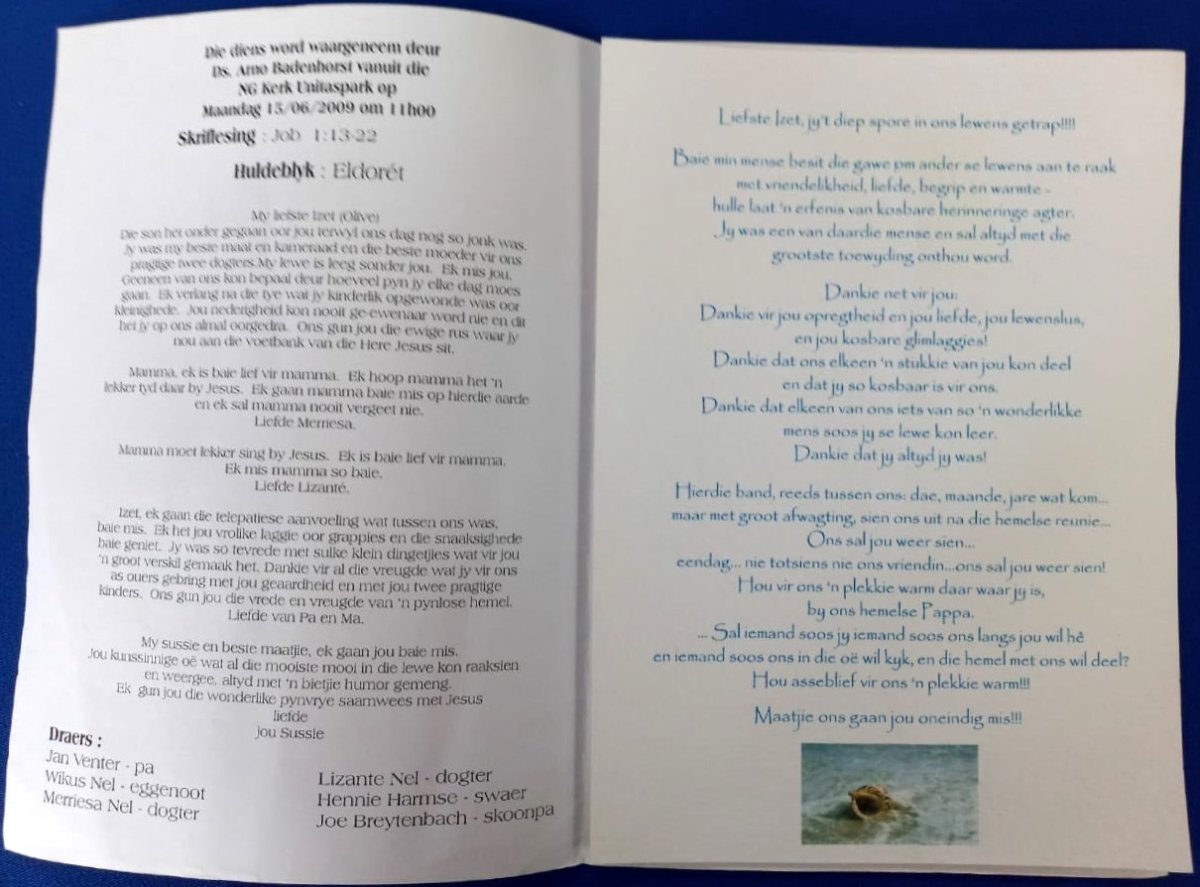 Die diens word waargeneem deur
Ds. Arno Badenhorst vanuit die
NG Kerk Unitaspark op
Maandag 15/06/2009 om 11h00
Skriflesing : Job 1:13-22
Huldeblyk : Eldorét
My liefste Izet (Olive)
Die son het onder gegaan oor jou terwyl ons dag nog so jonk was.
Jy was my beste maat en kameraad en die beste moeder vir ons
pragtige twee dogters.My lewe is leeg sonder jou. Ek mis jou.
Geeneen van ons kon bepaal deur hoeveel pyn jy elke dag moes
gaan. Ek verlang na die tye wat jy kinderlik opgewonde was oor
kleinighede. Jou nederigheid kon nooit ge-ewenaar word nie en dit
het jy op ons almal oorgedra. Ons gun jou die ewige rus waar jy
nou aan die voetbank van die Here Jesus sit.
Mamma, ek is baie lief vir mamma. Ek hoop mamma het 'n
lekker tyd daar by Jesus. Ek gaan mamma baie mis op hierdie aarde
en ek sal mamma nooit vergeet nie.
Liefde Merriesa.
Mamma moet lekker sing by Jesus. Ek is baie lief vir mamma.
Ek mis mamma so baie.
Liefde Lizanté.
Izet, ek gaan die telepatiese aanvoeling wat tussen ons was,
baie mis. Ek het jou vrolike laggie oor grappies en die snaaksighede
baie geniet. Jy was so tevrede met sulke klein dingetjies wat vir jou
'n groot verskil gemaak het. Dankie vir al die vreugde wat jy vir ons
as ouers gebring met jou geaardheid en met jou twee pragtige
kinders. Ons gun jou die vrede en vreugde van 'n pynlose hemel.
Liefde van Pa en Ma.
My sussie en beste maatjie, ek gaan jou baie mis.
Jou kunssinnige oë wat al die mooiste mooi in die lewe kon raaksien
en weergee, altyd met 'n bietjie humor gemeng.
Ek gun jou die wonderlike pynvrye saamwees met Jesus
liefde
jou Sussie
Draers :
Jan Venter - pa
Wikus Nel - eggenoot
Merriesa Nel - dogter
Lizante Nel - dogter
Hennie Harmse - swaer
Joe Breytenbach - skoonpa
Liefste Izet, jy't diep spore in ons lewens getrap!!!!
Baie min mense besit die gawe pm ander se lewens aan te raak
met vriendelikheid, liefde, begrip en warmte -
hulle laat 'n erfenis van kosbare herinneringe agter.
Jy was een van daardie mense en sal altyd met die
grootste toewyding onthou word.
Dankie net vir jou:
Dankie vir jou opregtheid en jou liefde, jou lewenslus,
en jou kosbare glimlaggies!
Dankie dat ons elkeen 'n stukkie van jou kon deel
en dat jy so kosbaar is vir ons.
Dankie dat elkeen van ons iets van so 'n wonderlikke
mens soos jy se lewe kon leer.
Dankie dat jy altyd jy was!
Hierdie band, reeds tussen ons: dae, maande, jare wat kom...
maar met groot afwagting, sien ons uit na die hemelse reunie...
Ons sal jou weer sien...
eendag... nie totsiens nie ons vriendin...ons sal jou weer sien!
Hou vir ons 'n plekkie warm daar waar jy is,
by ons hemelse Pappa.
... Sal iemand soos jy iemand soos ons langs jou wil hê
en iemand soos ons in die oë wil kyk, en die hemel met ons wil deel?
Hou asseblief vir ons 'n plekkie warm!!!
Maatjie ons gaan jou oneindig mis!!!